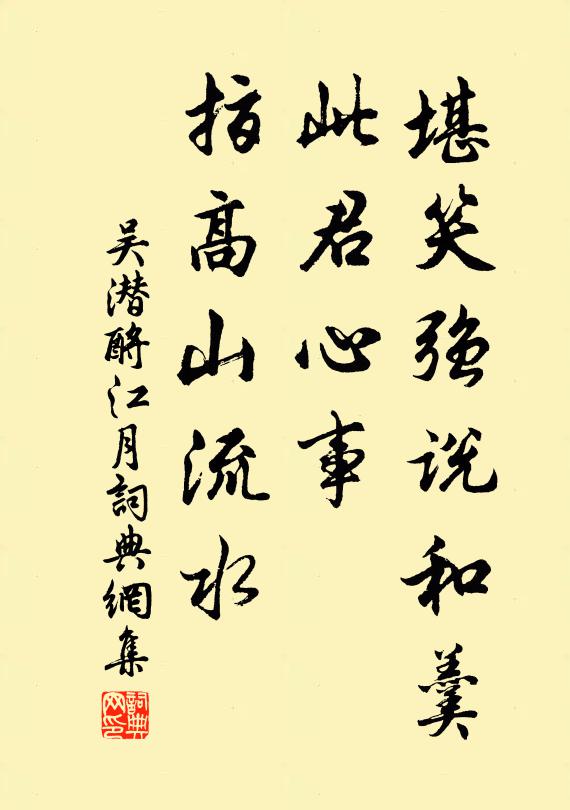 堪笑強説和羹
此君心事
指高山流水
吴潜酹江月詞典網集
詞典网印